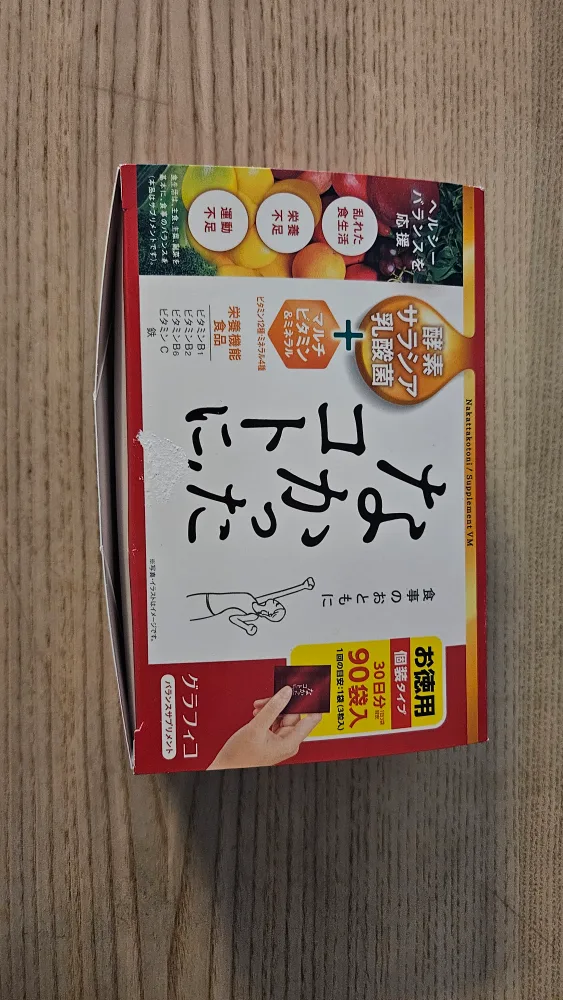 Nakattakotoni / Supplement VM
ヘルシー
バランスを
応援
乱れた
食生活
栄養
不足
運動
不足
食生活は、主食、主菜、副菜を
基本に、食事のバランスを。
(本品はサプリメントです。)
酵素
サラシア
乳酸菌
+
マルチ
ビタミン
&ミネラル
ビタミン12種・ミネラル4種
栄養機能
食品
ビタミンB1
ビタミンB2
ビタミンB6
ビタミンC
鉄
なかった
コトに。
食事のおともに
お徳用
個装タイプ
30日分
90袋入
1回の目安:1袋(3粒入)
なかった
コトに。
※写真・イラストはイメージです。
グラフィコ
バランスサプリメント